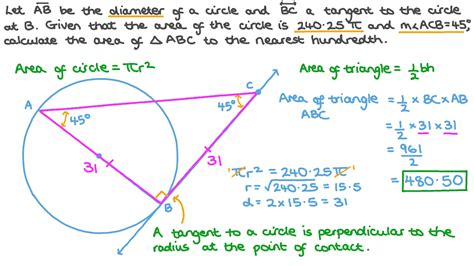 Let AB be the diameter of a circle and BC a tangent to the circle
at B. Given that the area of the circle is 240.25π and m∠ACB=45°,
calculate the area of △ABC to the nearest hundredth.
Area of circle = πr²
Area of triangle = 1/2 bh
C
45°
A
45°
31
31
B
Area of triangle ABC = 1/2 × BC × AB
= 1/2 × 31 × 31
= 961/2
= 480.50
πr² = 240.25π
r = √240.25 = 15.5
d = 2 × 15.5 = 31
A tangent to a circle is perpendicular to the
radius at the point of contact.